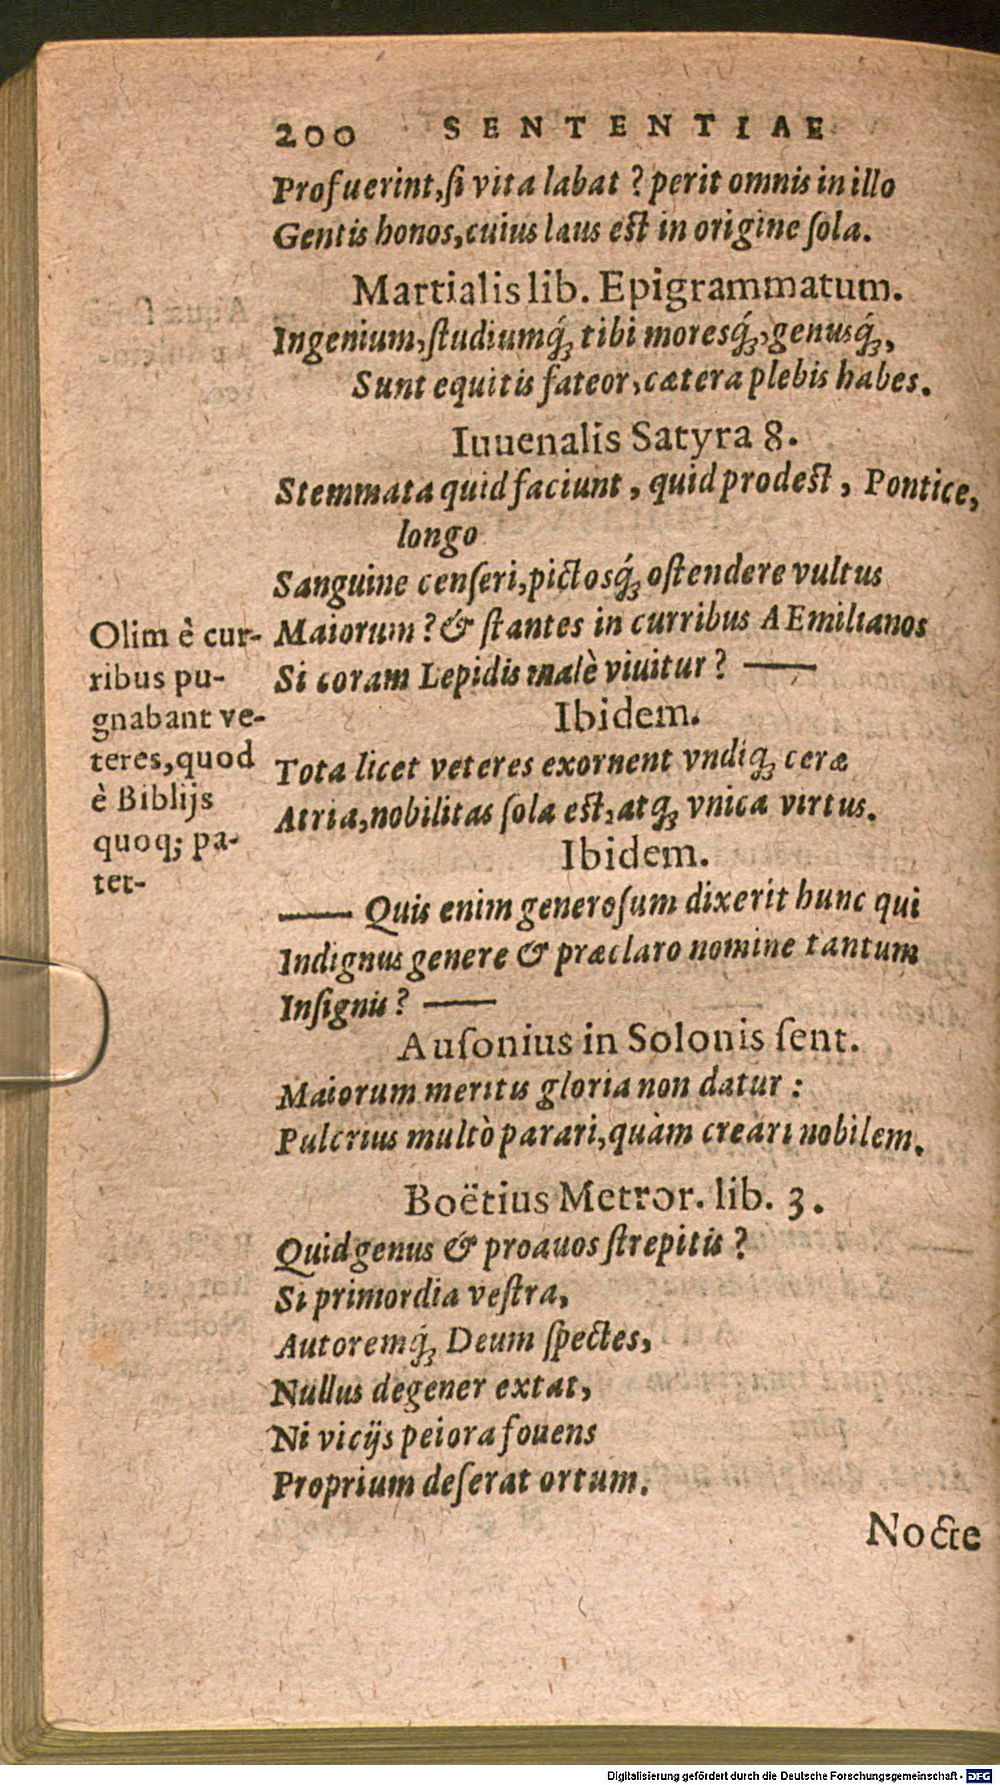 200 SENTENTIAE
Profuerint,ſi vita labat ? perit omnis in illo
Gentis honos,cuius laus est in origine ſola.
Martialis lib. Epigrammatum.
Ingenium,ſtudiumq́; tibi moresq́;,genusq́;,
Sunt equitis fateor,cætera plebis habes.
Iuuenalis Satyra 8.
Stemmata quid faciunt , quid prodest , Pontice,
longo
Sanguine cenſeri,pictosq́; oſtendere vultus
Maiorum ? & ſtantes in curribus AEmilianos
Si coram Lepidis malè viuitur ? ——
Ibidem.
Tota licet veteres exornent vndiq; ceræ
Atria,nobilitas ſola est,atq; vnica virtus.
Ibidem.
—— Quis enim generoſum dixerit hunc qui
Indignus genere & præclaro nomine tantum
Inſignis ? ——
Auſonius in Solonis ſent.
Maiorum meritis gloria non datur :
Pulcrius multò parari,quàm creári nobilem.
Boëtius Metror. lib. 3.
Quid genus & proauos ſtrepitis ?
Si primordia veſtra,
Autoremq́; Deum ſpectes,
Nullus degener extat,
Ni vicijs peiora fouens
Proprium deſerat ortum.
Nocte
Olim è cur-
ribus pu-
gnabant ve-
teres,quod
è Biblijs
quoq; pa-
tet-
Digitalisierung gefördert durch die Deutsche Forschungsgemeinschaft - DFG